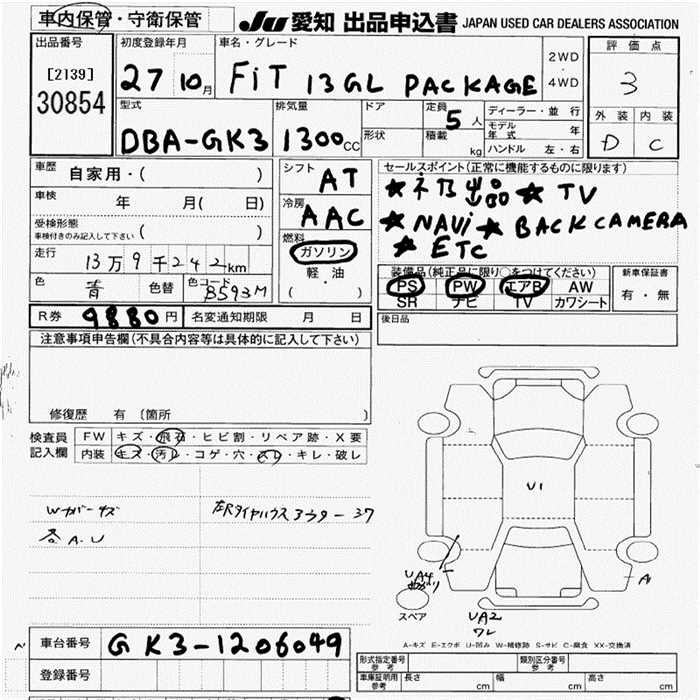 車内保管・守衛保管 JU 愛知 出品申込書 JAPAN USED CAR DEALERS ASSOCIATION
出品番号
[2139]
30854
初度登録年月
27 10月
車名・グレード
FiT 13GL PACKAGE
2WD
・
4WD
評価点
3
外装 内装
D C
型式
DBA-GK3
排気量
1300cc
ドア
形状
定員
5人
積載
kg
ディーラー・並行
モデル年式 年
ハンドル 左・右
車歴
自家用・( )
車検
年 月( 日)
受検形態
車検付きのみ記入して下さい ( )
走行
13万9千242km
色
青
色替
色コード
B593M
シフト
AT
冷房
AAC
燃料
ガソリン
軽・油
( )
セールスポイント(正常に機能するものに限ります)
★ TV
★ NAVi ★ BACK CAMERA
★ ETC
装備品(純正品に限り○をつけてください)
PS PW エアB AW
SR ナビ TV カワシート
新車保証書
有・無
R券 9880円 名変通知期限 月 日
後日品
注意事項申告欄(不具合内容等は具体的に記入して下さい)
修復歴 有 (箇所 )
検査員 FW キズ・飛石・ヒビ割・リペア跡・X要
記入欄 内装 キズ・汚レ・コゲ・穴・スレ・キレ・破レ
Wカバーキズ
各A.U
U1
UA4
A
スペア
UA2
ワレ
A-キズ E-エクボ U-凹み W-補修跡 S-サビ C-腐食 XX-交換済
車台番号 GK3-1206049
登録番号
形式指定番号 参考
類別区分番号 参考
車庫証明用 参考 長さ cm 幅 cm 高さ cm